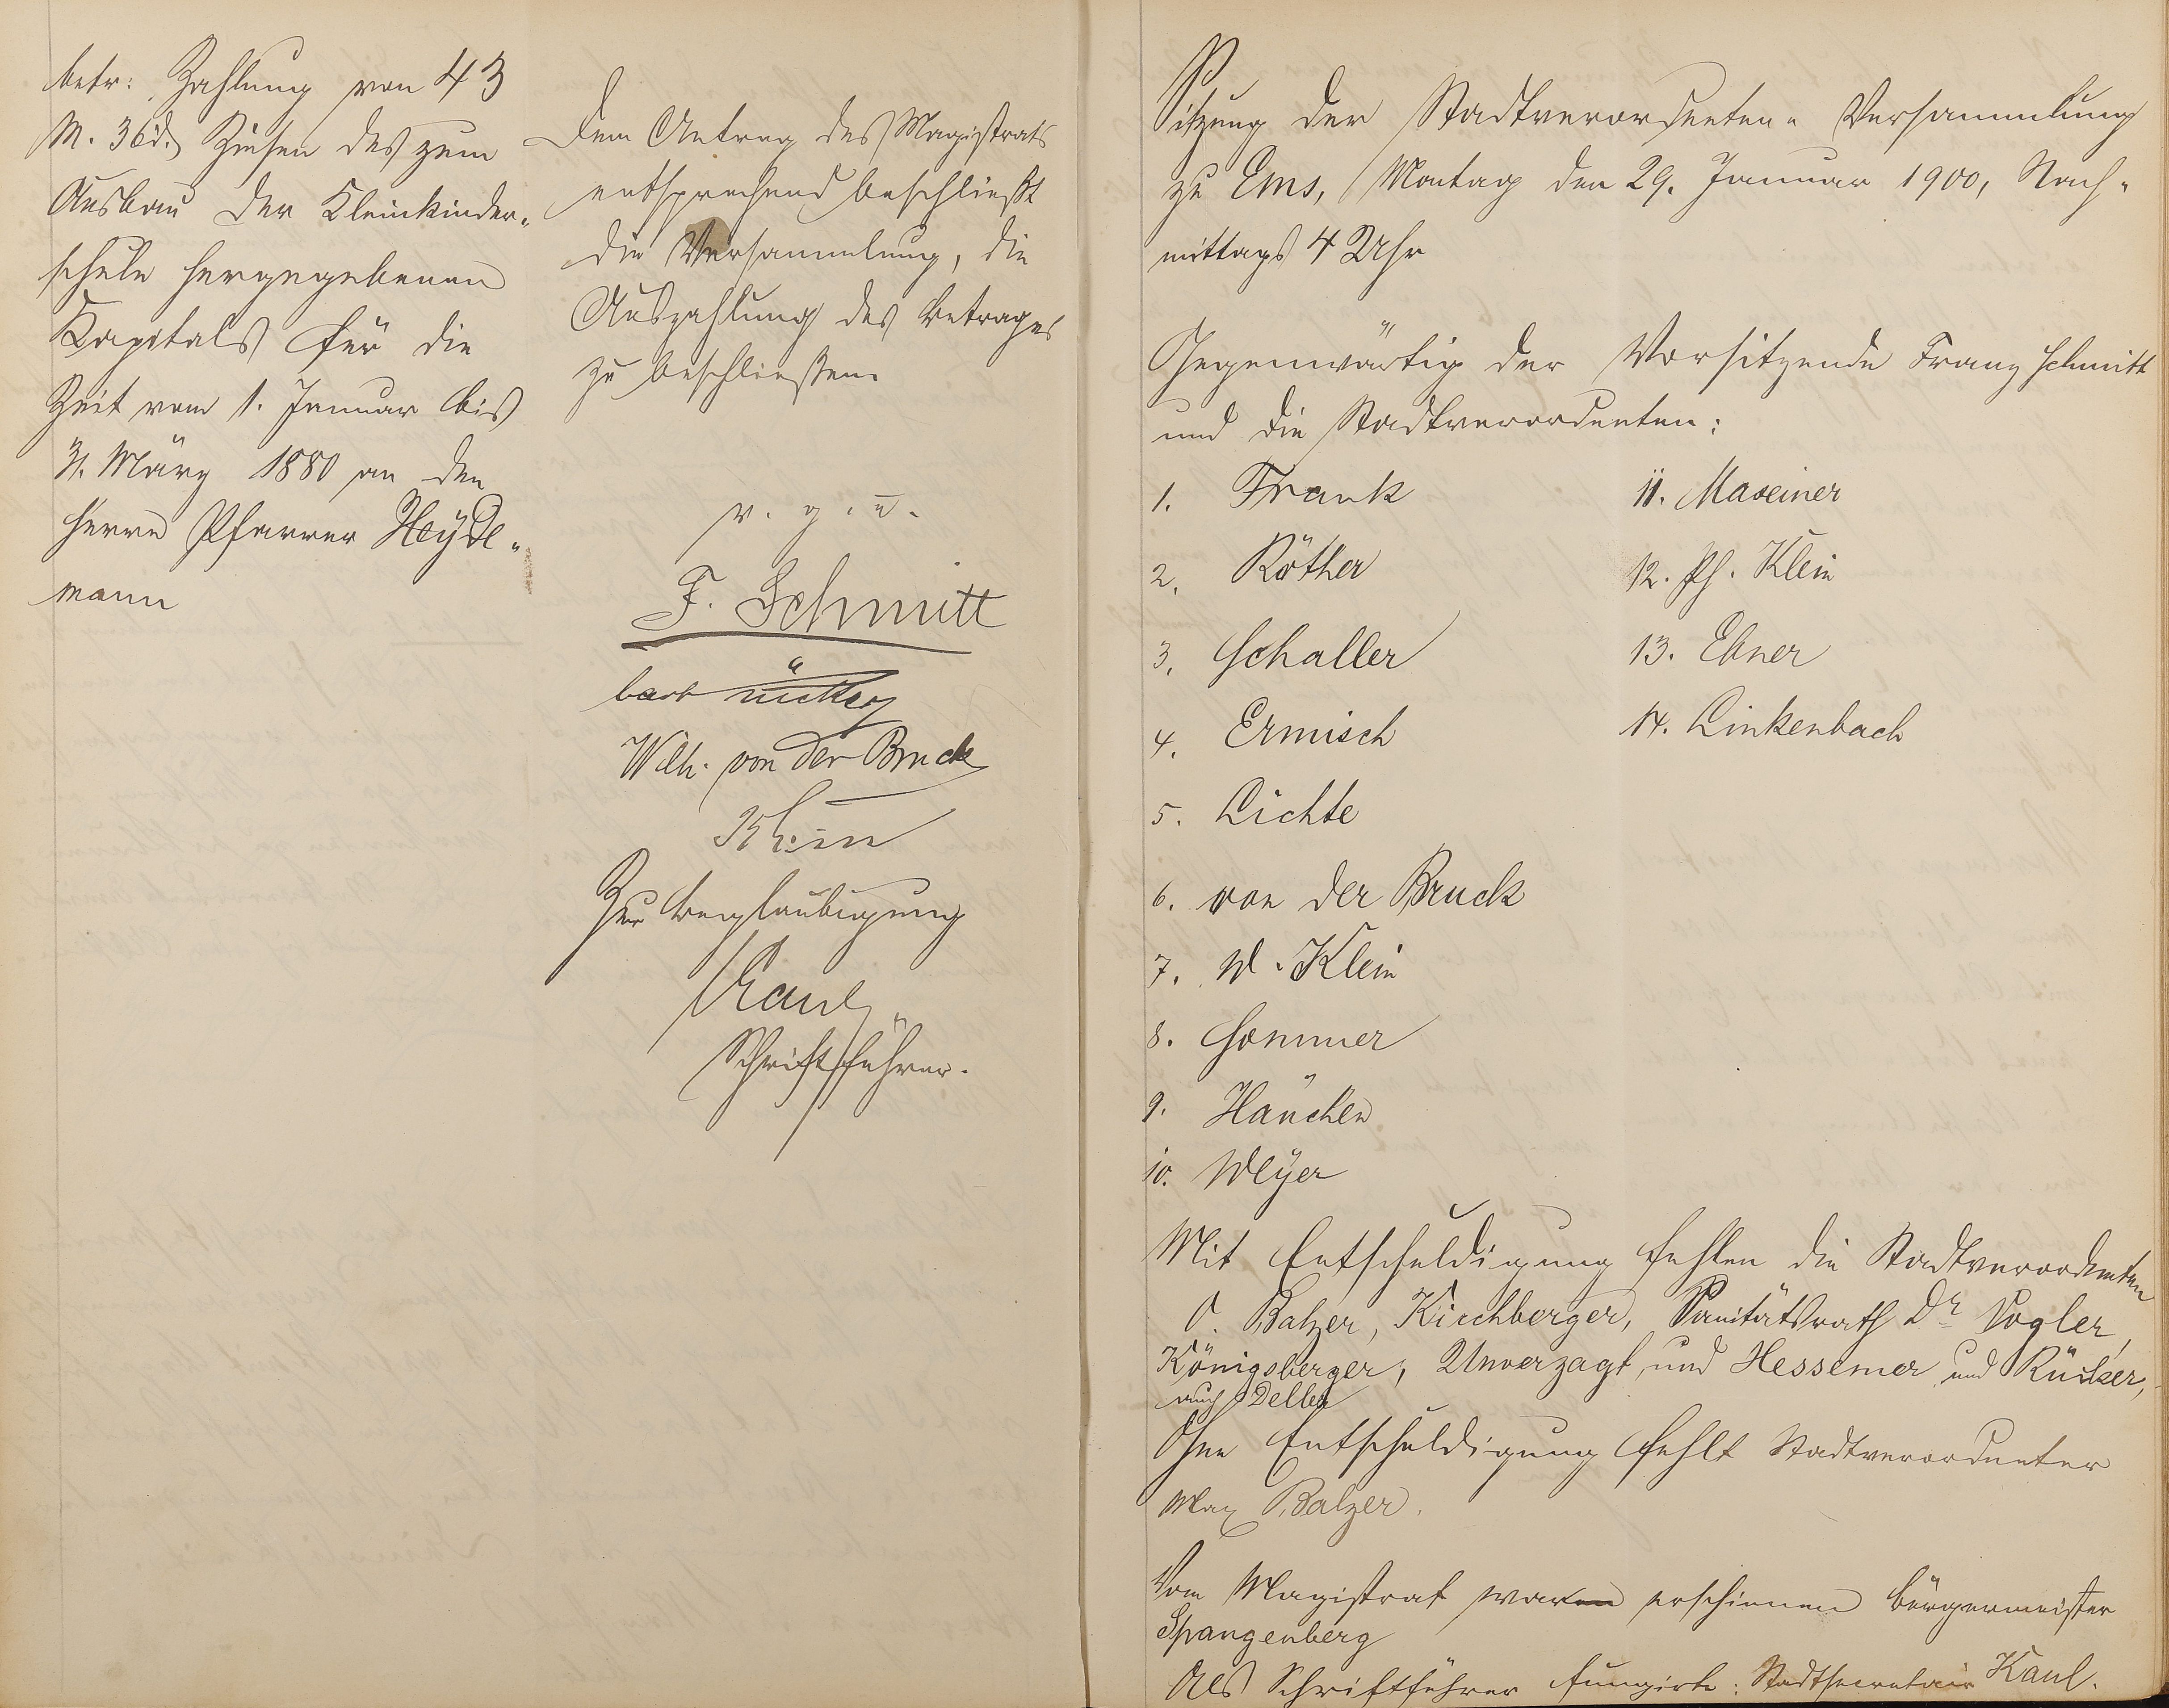 betr: Zahlung von 43
M. 36 d. Zinsen des zum
Ausbau der Kleinkinder-
schule hergegebenen
Kapitals für die
Zeit vom 1. Januar bis
31. März 1880 an den
Herrn Pfarrer Heyde-
mann
Dem Antrag des Magistrats
entsprechend beschließt
die Versammlung, die
Auszahlung des Betrages
zu beschließen.
v. g. u.
F. Schmitt
Wilh. von der Bruck
Klein
Zur Beglaubigung
Kaul
Schriftführer.
Sitzung der Stadtverordneten-Versammlung
zu Ems, Montag den 29. Januar 1900, Nach-
mittags 4 Uhr
Gegenwärtig der Vorsitzende Franz Schmitt
und die Stadtverordneten:
1. Frank
2. Röther
3. Schaller
4. Ermisch
5. Lichte
6. von der Bruck
7. W. Klein
8. Sommer
9. Hänchen
10. Meyer
11. Maxeiner
12. Ph. Klein
13. Ebner
14. Linkenbach
Mit Entschuldigung fehlen die Stadtverordneten
O. Balzer, Kirchberger, Sanitätsrath Dr Vogler,
Königsberger, Unverzagt, und Hessemer und Rücker,
auch Deller
Ohne Entschuldigung fehlt Stadtverordneter
Max Balzer.
Vom Magistrat waren erschienen Bürgermeister
Spangenberg
Als Schriftführer fungirte: Stadtsecretair Kaul.